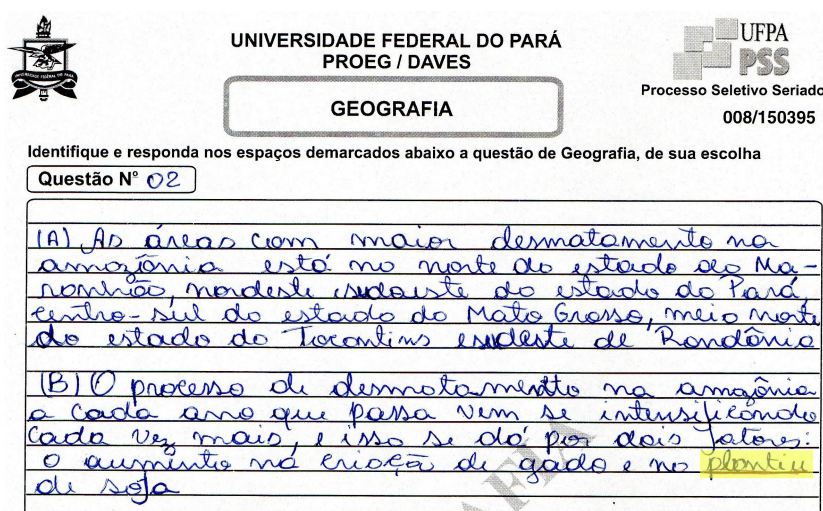 UNIVERSIDADE FEDERAL DO PARÁ
PROEG / DAVES
UFPA
PSS
Processo Seletivo Seriado
GEOGRAFIA
008/150395
Identifique e responda nos espaços demarcados abaixo a questão de Geografia, de sua escolha
Questão N° 02
(A) As áreas com maior desmatamento na
amazônia está no norte do estado do Ma-
ranhão, nordeste e sudeste do estado do Pará,
centro-sul do estado do Mato Grosso, meio norte
do estado do Tocantins e sudeste de Rondônia
(B) O processo de desmatamento na amazônia
a cada ano que passa vem se intensificando
cada vez mais, e isso se dá por dois fatores:
o aumento na criação de gado e no plantiu
de soja
AFIA